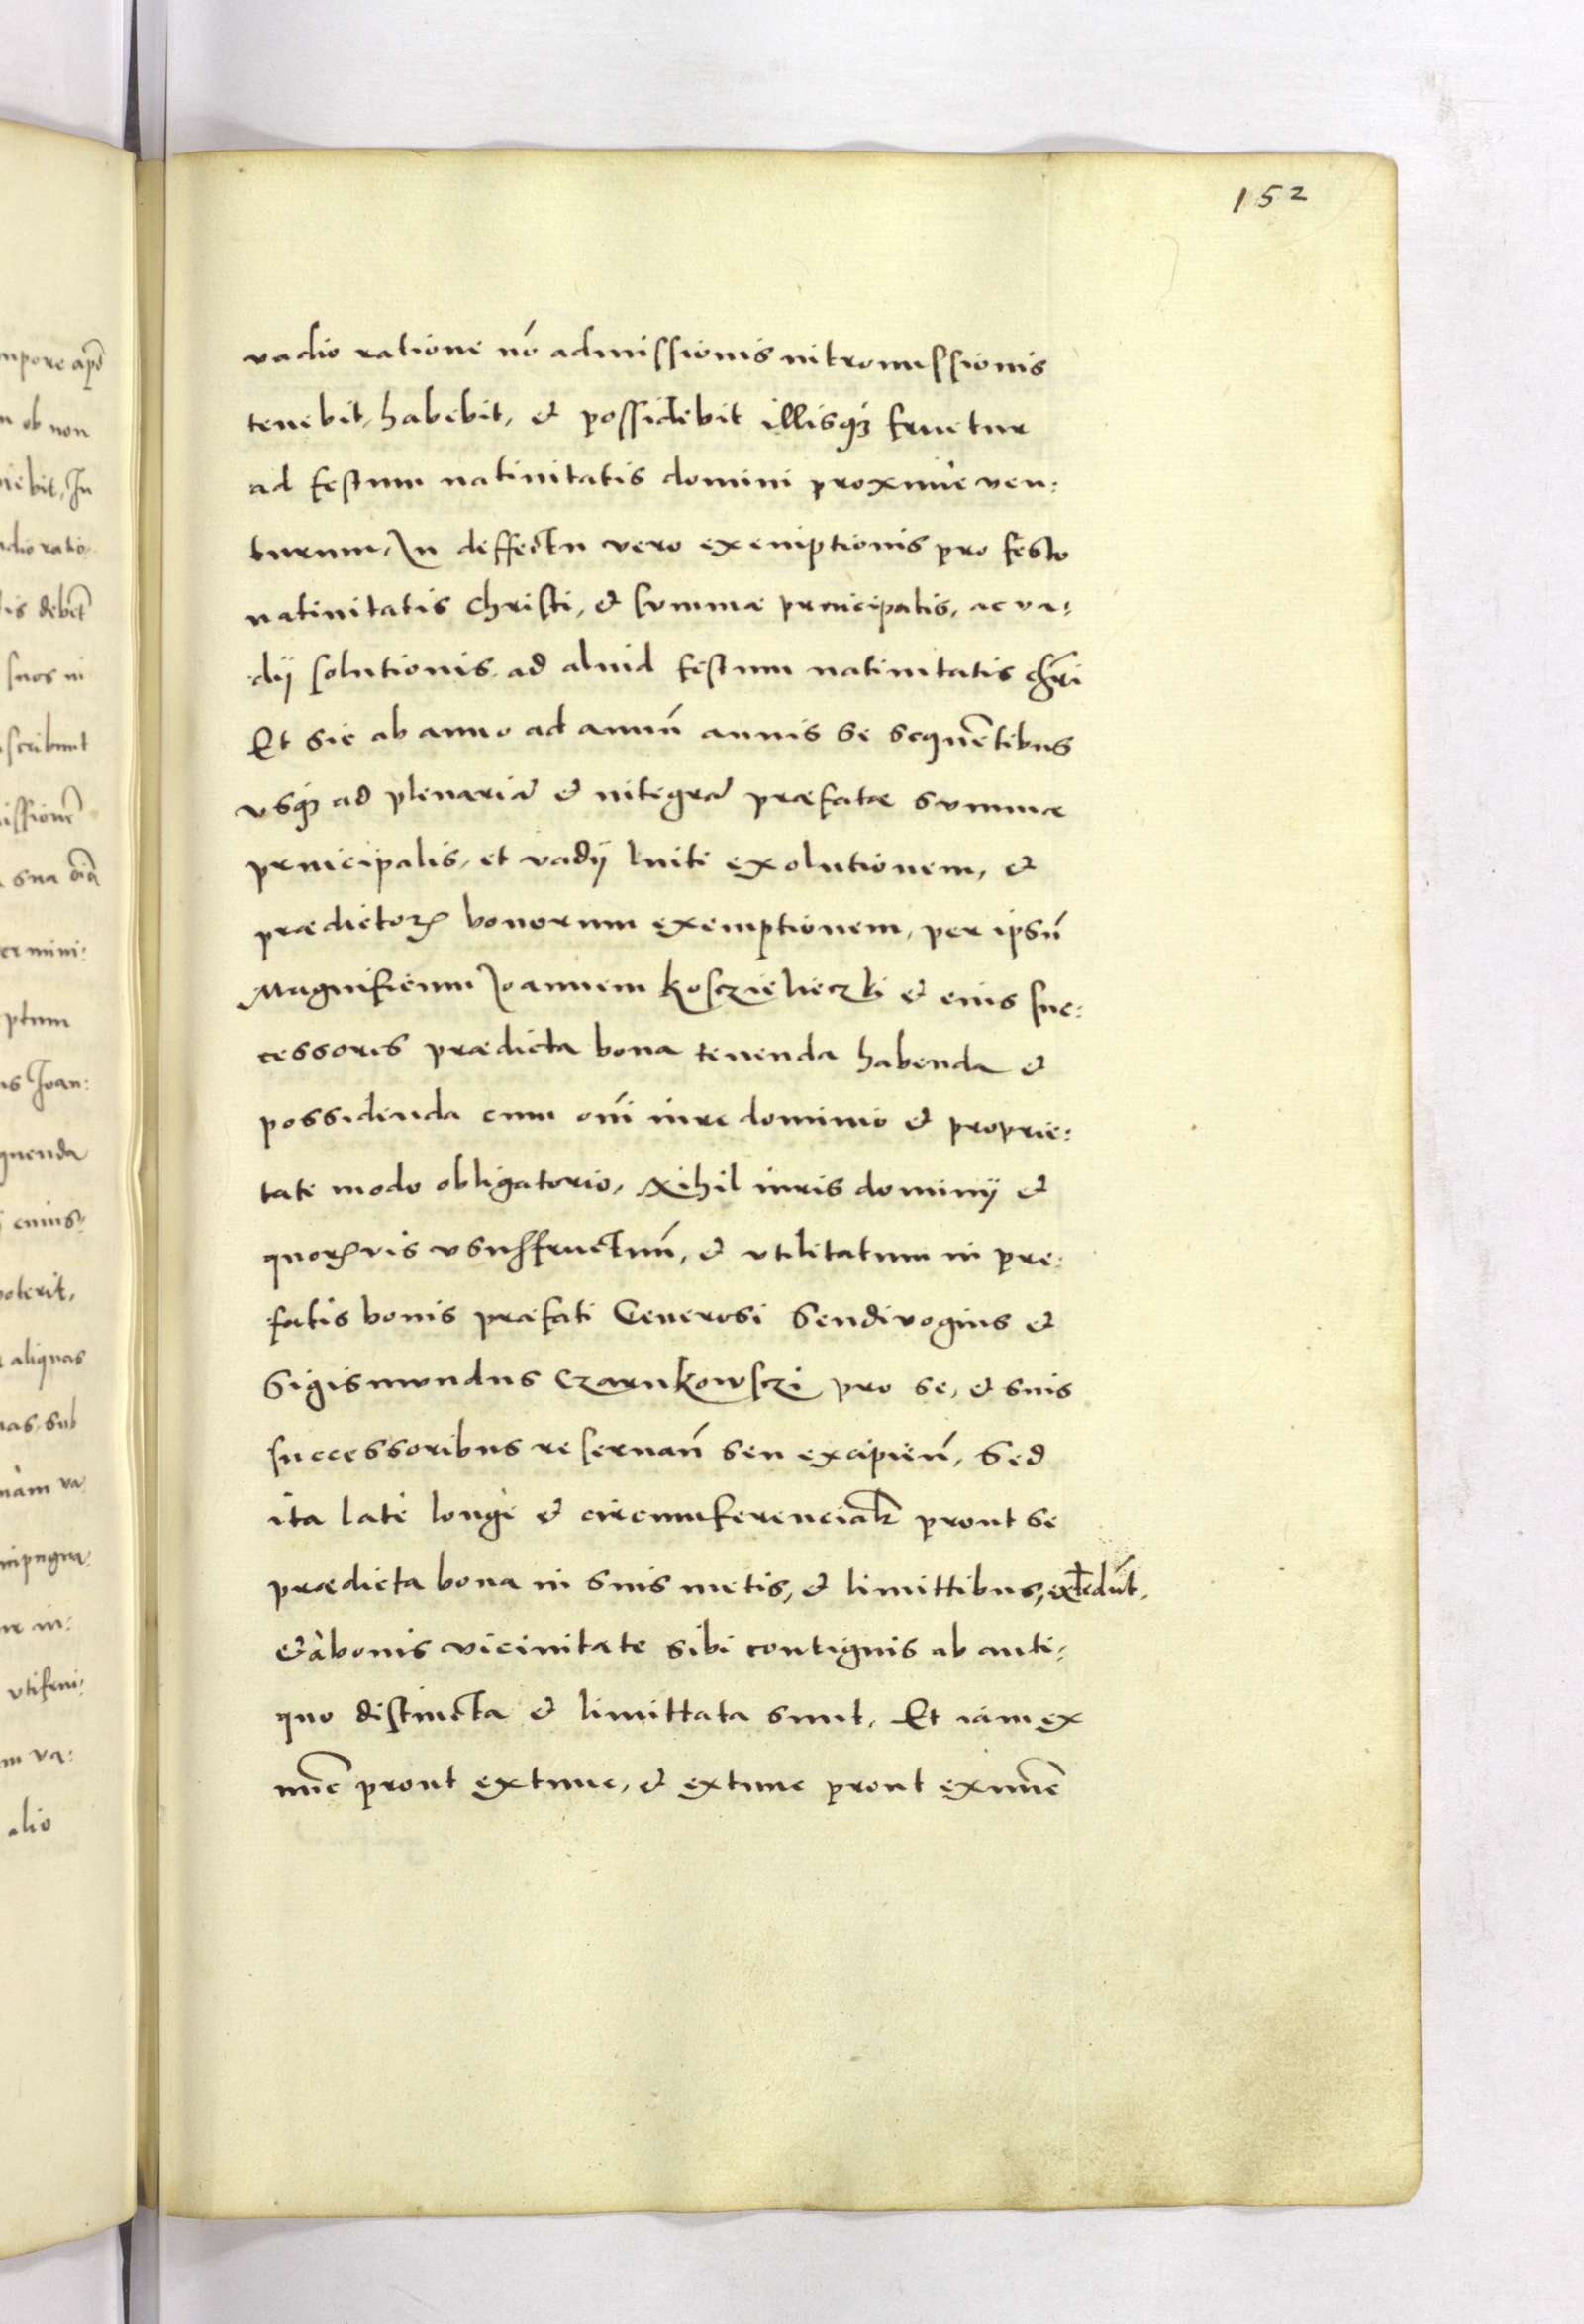 152
vadio ratione nõ admissionis intromissionis
tenebit, habebit, et possidebit illisqꝫ fruetur
ad festum natiuitatis domini proxime ven:
turum, In deffectu vero exemptionis pro festo
natiuitatis Christi, et summæ principalis, ac va:
dij solutionis ad aliud festum natiuitatis chr̃i
Et sic ab anno ad annũ annis se sequẽtibus
vsqꝫ ad plenariã et integrã præfatæ summæ
principalis, et vadij luiti exolutionem, et
prædictoꝝ bonorum exemptionem, per ipsũ
Magnificum Joannem Kosczieleczki et eius suc:
cessores prædicta bona tenenda habenda et
possidenda cum om̃i iure dominio et proprie:
tate modo obligatorio, Nihil iuris dominij et
quoꝝvis vsuffructuũ, et vtilitatum in præ:
fatis bonis præfati Generosi Sendivogius et
Sigismundus Czarnkowsczi pro se, et suis
successoribus reseruañ seu excipieñ, Sed
ita late longe et circumferencialr̃ prout se
prædicta bona in suis metis, et limittibus, extẽdũt,
et à bonis vicinitate sibi contiguis ab anti:
quo distincta et limittata sunt, Et iam ex
nũc prout extunc, et extunc prout exnũc
mpore apd̃
ob non
iebit, In
adio ratio
lis debet̃
suos in
scribunt
issionẽ
sua õia
er mini:
ptum
us Joan:
quenda
cuius:
poterit,
aliquas
uas, sub
nam va
impugna:
ne in:
vtifrui:
m va:
alio